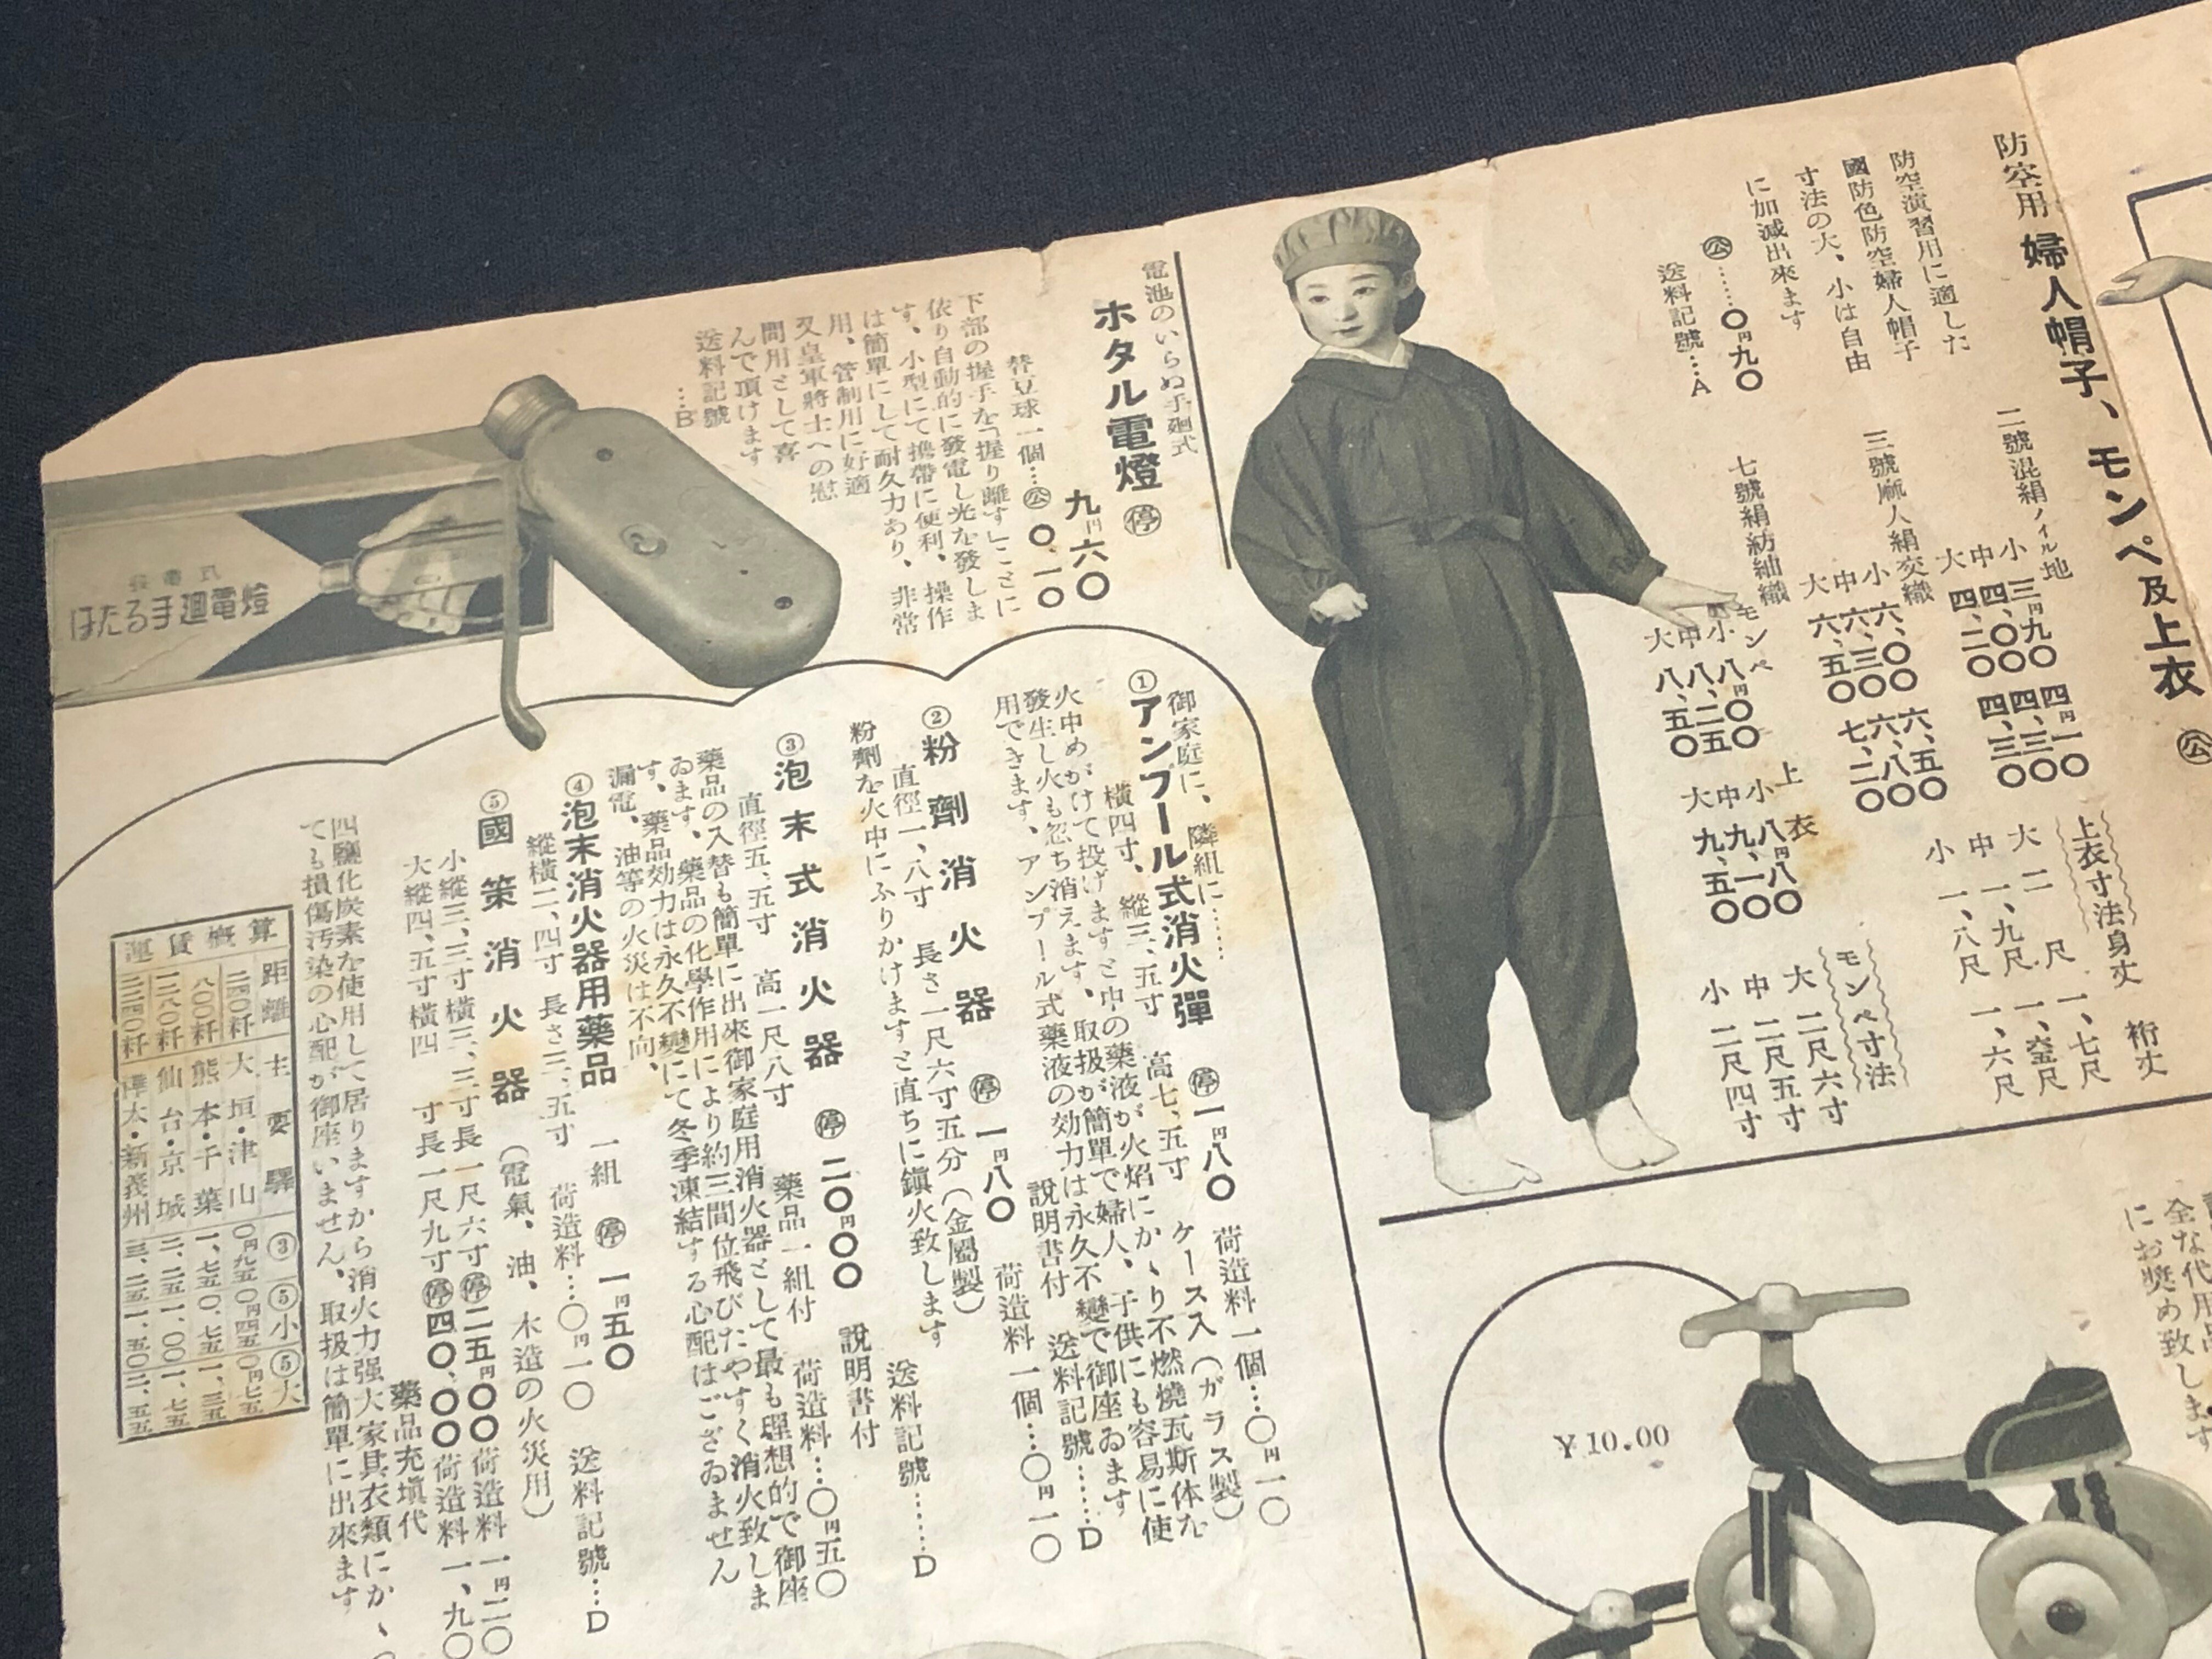 防空用 婦人帽子、モンペ及上衣 ㊕
防空演習用に適した
國防色防空婦人帽子
寸法の大、小は自由
に加減出來ます
……〇円九〇
送料記號…A
二號混絹ノイル地
小 三円九〇 四円一〇
中 四、〇〇 四、三〇
大 四、二〇 四、三〇
三號麻人絹交織
小 六、〇〇 六、五〇
中 六、三〇 六、八〇
大 六、五〇 七、二〇
七號絹紡紬織
モンペ
小 八円〇〇
中 八、二五
大 八、五〇
上衣
小 八円八〇
中 九、一〇
大 九、五〇
上衣寸法
身丈 裄丈
大 二尺 一、七尺
中 一、九尺
小 一、八尺 一、六尺
モンペ寸法
大 二尺六寸
中 二尺五寸
小 二尺四寸
電池のいらぬ手廻式
ホタル電燈 停
九円六〇
替豆球一個…公〇・一〇
下部の握手を「握り離す」ことに
依り自動的に發電し光を發しま
す、小型にて携帶に便利、操作
は簡單にして耐久力あり、非常
用、管制用に好適
又皇軍將士への慰
問用として喜
んで頂けます
送料記號
…B
ほたる手廻電燈
御家庭に、隣組に……
①アンプール式消火彈 停一円八〇 荷造料一個…〇円一〇
横四寸、縱三、五寸 高七、五寸 ケース入(ガラス製)
火中めがけて投げますと中の藥液が火焰にかゝり不燃燒瓦斯体を
發生し火も忽ち消えます、取扱が簡單で婦人、子供にも容易に使
用できます、アンプール式藥液の効力は永久不變で御座ゐます
說明書付 送料記號……D
②粉劑消火器 停一円八〇 荷造料一個…〇円一〇
直徑一、八寸 長さ一尺六寸五分(金屬製)
粉劑を火中にふりかけますと直ちに鎭火致します
送料記號……D
③泡末式消火器 停二〇円〇〇 說明書付
直徑五、五寸 高一尺八寸 藥品一組付 荷造料…〇円五〇
藥品の入替も簡單に出來御家庭用消火器として最も理想的で御座
ゐます、藥品の化學作用により約三間位飛びたやすく消火致しま
す、藥品効力は永久不變にて冬季凍結する心配はござゐません
漏電、油等の火災は不向、
④泡末消火器用藥品 一組 停一円五〇
縱横二、四寸 長さ三、五寸 荷造料…〇円一〇 送料記號…D
⑤國策消火器 (電氣、油、木造の火災用)
小縱三、三寸横三、三寸長一尺六寸停二五円〇〇荷造料一円二〇
大縱四、五寸横四 寸長一尺九寸停四〇、〇〇荷造料一、九〇
藥品充塡代
四鹽化炭素を使用して居りますから消火力强大家具衣類にかゝ
ても損傷汚染の心配が御座いません、取扱は簡單に出來ます
運賃概算
距離 主要驛 ③ ⑤小 ⑤大
二五〇粁 大垣・津山 〇円九五 〇円四五 〇円七五
八〇〇粁 熊本・千葉 一、七五 〇、七五 一、三五
仙台・京城 二、二五 一、〇〇 一、七五
樺太・新義州 三、二五 一、五〇 二、五五
全な代用品
にお奬め致します
¥10.00